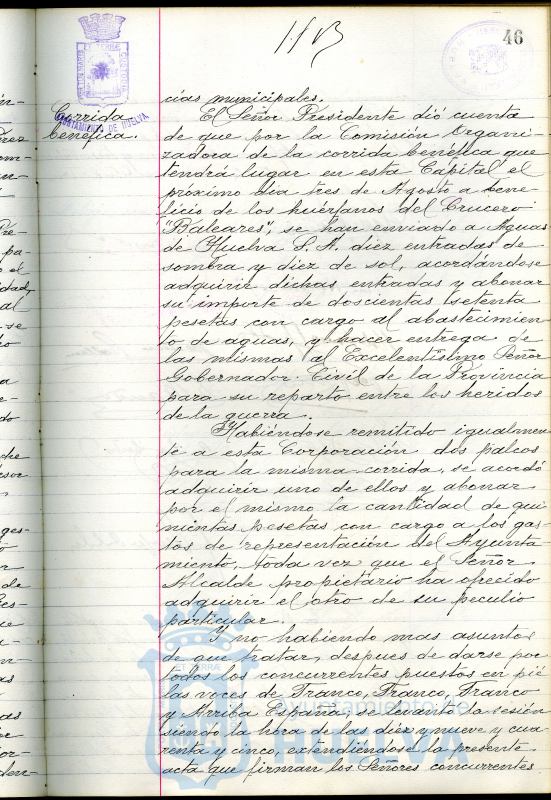 46
Corrida
benéfica.
AYUNTAMIENTO DE HUELVA
cias municipales.
El Señor Presidente dió cuenta
de que por la Comisión Organi-
zadora de la corrida benéfica que
tendrá lugar en esta Capital el
próximo dia tres de Agosto a bene-
ficio de los huérfanos del Crucero
"Baleares", se han enviado a Aguas
de Huelva S. A. diez entradas de
sombra y diez de sol, acordándose
adquirir dichas entradas y abonar
su importe de doscientas setenta
pesetas con cargo al abastecimien-
to de aguas, y hacer entrega de
las mismas al Excelentísimo Señor
Gobernador Civil de la Provincia
para su reparto entre los heridos
de la guerra.
Habiéndose remitido igualmen-
te a esta Corporación, dos palcos
para la misma corrida, se acordó
adquirir uno de ellos y abonar
por el mismo la cantidad de qui-
nientas pesetas con cargo a los gas-
tos de representación del Ayunta-
miento, toda vez que el Señor
Alcalde propietario ha ofrecido
adquirir el otro de su peculio
particular.
Y no habiendo mas asuntos
de que tratar, despues de darse por
todos los concurrentes puestos en pié
las voces de Franco, Franco, Franco
y Arriba España, se levantó la sesión
siendo la hora de las diez y nueve y cua-
renta y cinco, extendiéndose la presente
acta que firman los Señores concurrentes
Ayuntamiento de
Huelva